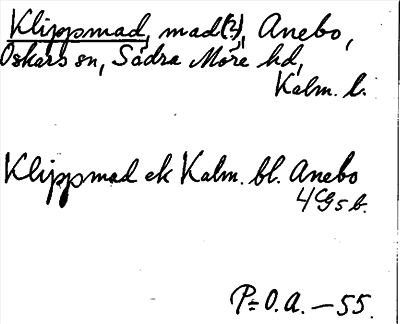 Klippmad, mad(?), Anebo,
Oskars sn, Södra Möre hd,
Kalm. l.
Klippmad ek Kalm. bl. Anebo
4G5b.
P÷O.A. – 55.